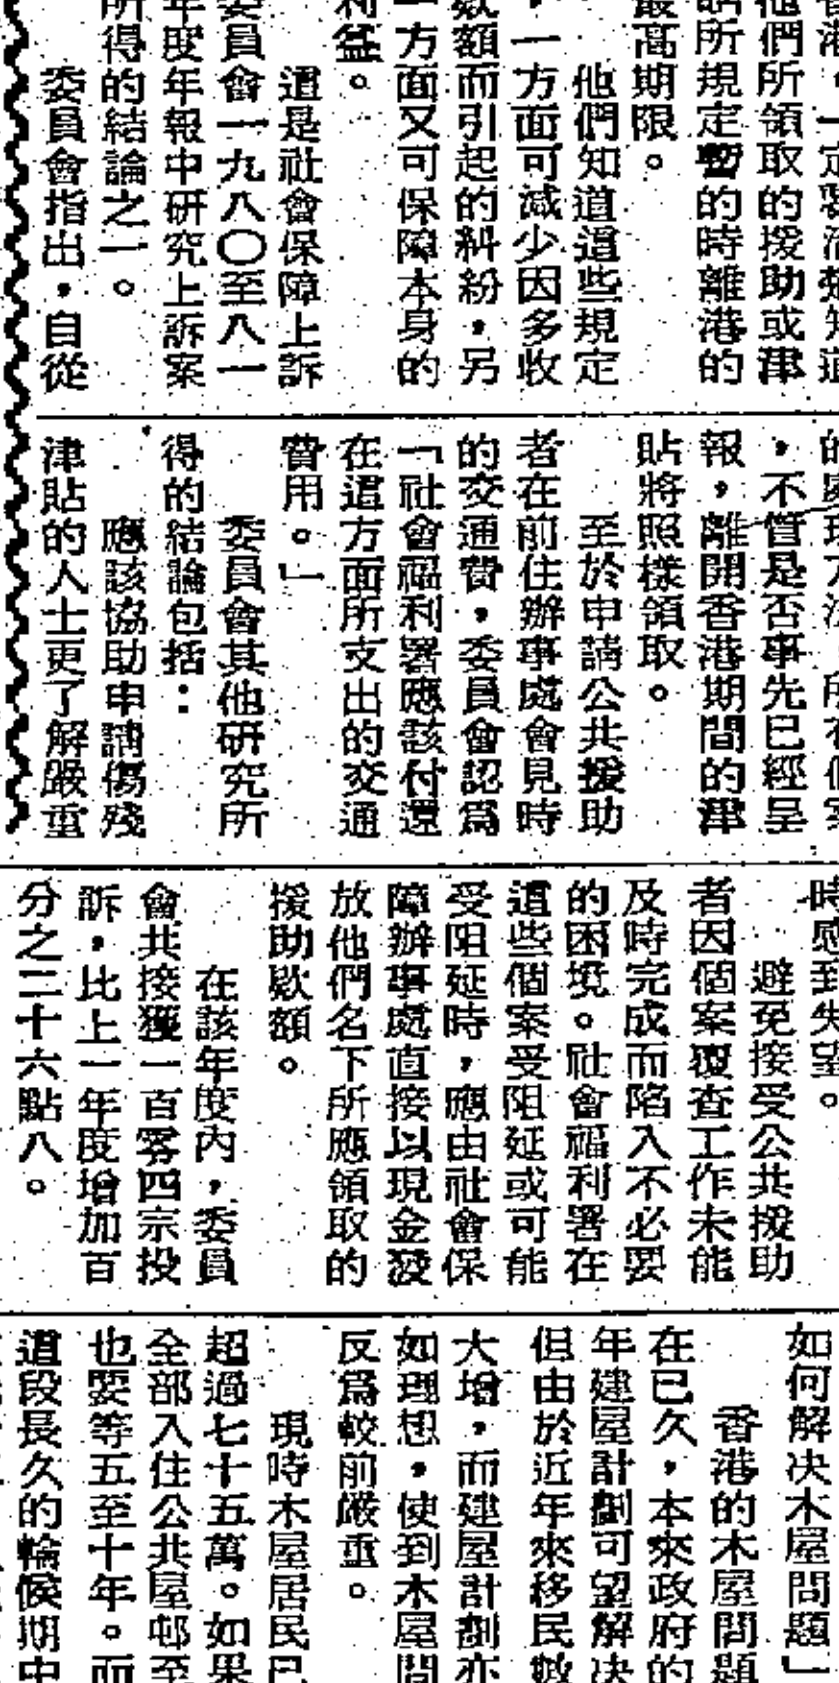 他們所領取的援助或津
所規定暫的時離港的
最高期限。
他們知道這些規定
，一方面可減少因多收
款額而引起的糾紛，另
一方面又可保障本身的
利益。
這是社會保障上訴
委員會一九八〇至八一
年度年報中研究上訴案
所得的結論之一。
委員會指出，自從
，不管是否事先已經呈
報，離開香港期間的津
貼將照樣領取。
至於申請公共援助
者在前住辦事處會見時
的交通費，委員會認為
「社會福利署應該付還
在這方面所支出的交通
費用。」
委員會其他研究所
得的結論包括：
應該協助申請傷殘
津貼的人士更了解嚴重
時感到失望。
避免接受公共援助
者因個案覆查工作未能
及時完成而陷入不必要
的困境。社會福利署在
這些個案受阻延或可能
受阻延時，應由社會保
障辦事處直接以現金發
放他們名下所應領取的
援助款額。
在該年度內，委員
會共接獲一百零四宗投
訴，比上一年度增加百
分之二十六點八。
如何解決木屋問題」
香港的木屋問題
在已久，本來政府的
年建屋計劃可望解決
但由於近年來移民數
大增，而建屋計劃亦
如理想，使到木屋問
反為較前嚴重。
現時木屋居民已
超過七十五萬。如果
全部入住公共屋邨至
也要等五至十年。而
這段長久的輪候期中